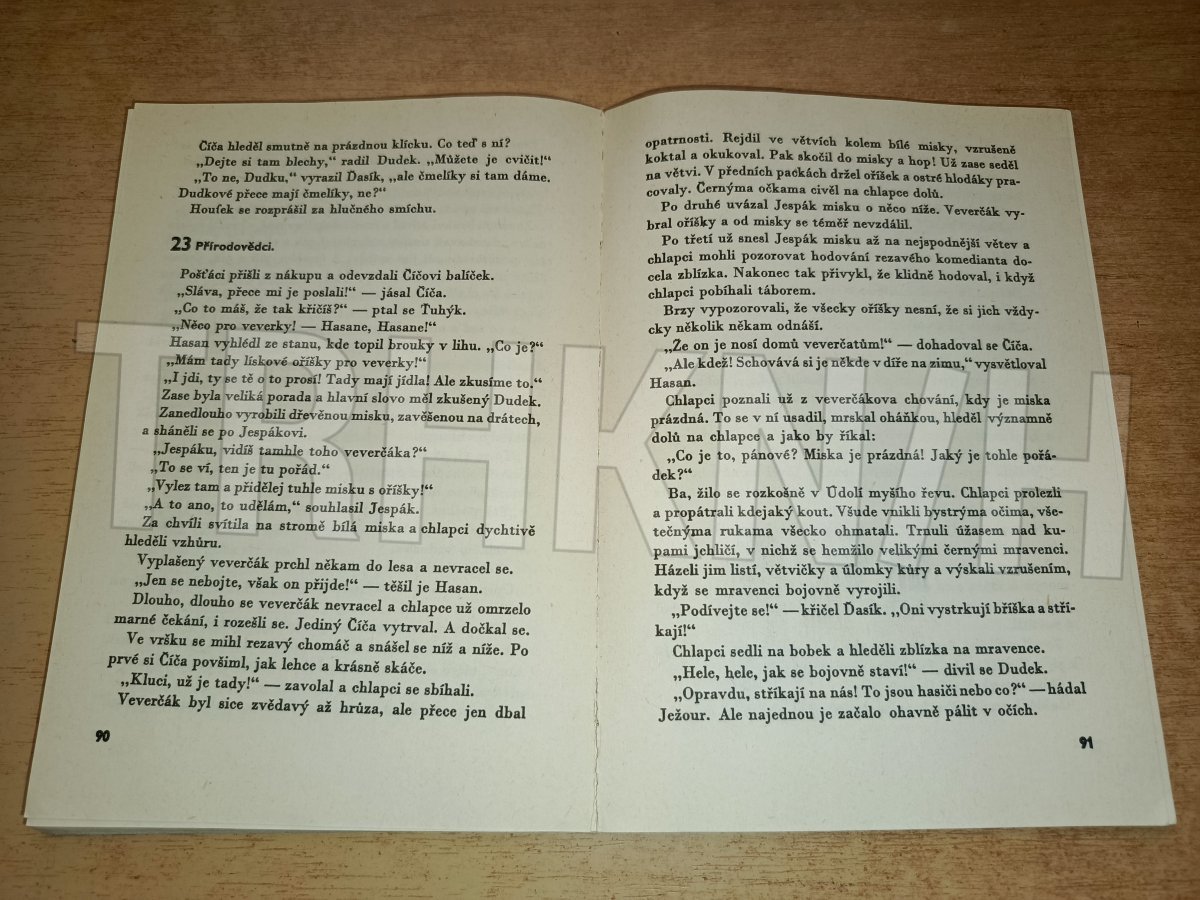 Číča hleděl smutně na prázdnou klícku. Co teď s ní?
„Dejte si tam blechy,“ radil Dudek. „Můžete je cvičit!“
„To ne, Dudku,“ vyrazil Ďasík, „ale čmelíky si tam dáme.
Dudkové přece mají čmelíky, ne?“
Houfek se rozprášil za hlučného smíchu.
23 Přírodovědci.
Pošťáci přišli z nákupu a odevzdali Číčovi balíček.
„Sláva, přece mi je poslali!“ — jásal Číča.
„Co to máš, že tak křičíš?“ — ptal se Tuhýk.
„Něco pro veverky! — Hasane, Hasane!“
Hasan vyhlédl ze stanu, kde topil brouky v lihu. „Co je?“
„Mám tady lískové oříšky pro veverky!“
„I jdi, ty se tě o to prosí! Tady mají jídla! Ale zkusíme to.“
Zase byla veliká porada a hlavní slovo měl zkušený Dudek.
Zanedlouho vyrobili dřevěnou misku, zavěšenou na drátech,
a sháněli se po Jespákovi.
„Jespáku, vidíš tamhle toho veverčáka?“
„To se ví, ten je tu pořád.“
„Vylez tam a přidělej tuhle misku s oříšky!“
„A to ano, to udělám,“ souhlasil Jespák.
Za chvíli svítila na stromě bílá miska a chlapci dychtivě
hleděli vzhůru.
Vyplašený veverčák prchl někam do lesa a nevracel se.
„Jen se nebojte, však on přijde!“ — těšil je Hasan.
Dlouho, dlouho se veverčák nevracel a chlapce už omrzelo
marné čekání, i rozešli se. Jediný Číča vytrval. A dočkal se.
Ve vršku se mihl rezavý chomáč a snášel se níž a níže. Po
prvé si Číča povšiml, jak lehce a krásně skáče.
„Kluci, už je tady!“ — zavolal a chlapci se sbíhali.
Veverčák byl sice zvědavý až hrůza, ale přece jen dbal
90
opatrnosti. Rejdil ve větvích kolem bílé misky, vzrušeně
koktal a okukoval. Pak skočil do misky a hop! Už zase seděl
na větvi. V předních packách držel oříšek a ostré hlodáky pra-
covaly. Černýma očkama civěl na chlapce dolů.
Po druhé uvázal Jespák misku o něco níže. Veverčák vy-
bral oříšky a od misky se téměř nevzdálil.
Po třetí už snesl Jespák misku až na nejspodnější větev a
chlapci mohli pozorovat hodování rezavého komedianta do-
cela zblízka. Nakonec tak přivykl, že klidně hodoval, i když
chlapci pobíhali táborem.
Brzy vypozorovali, že všecky oříšky nesní, že si jich vždy-
cky několik někam odnáší.
„Že on je nosí domů veverčatům!“ — dohadoval se Číča.
„Ale kdež! Schovává si je někde v díře na zimu,“ vysvětloval
Hasan.
Chlapci poznali už z veverčákova chování, kdy je miska
prázdná. To se v ní usadil, mrskal oháňkou, hleděl významně
dolů na chlapce a jako by říkal:
„Co je to, pánové? Miska je prázdná! Jaký je tohle pořá-
dek?“
Ba, žilo se rozkošně v Údolí myšího řevu. Chlapci prolezli
a propátrali kdejaký kout. Všude vnikli bystrýma očima, vše-
tečnýma rukama všecko ohmatali. Trnuli úžasem nad ku-
pami jehličí, v nichž se hemžilo velikými černými mravenci.
Házeli jim listí, větvičky a úlomky kůry a výskali vzrušením,
když se mravenci bojovně vyrojili.
„Podívejte se!“ — křičel Ďasík. „Oni vystrkují bříška a stří-
kají!“
Chlapci sedli na bobek a hleděli zblízka na mravence.
„Hele, hele, jak se bojovně staví!“ — divil se Dudek.
„Opravdu, stříkají na nás! To jsou hasiči nebo co?“ — hádal
Ježour. Ale najednou je začalo ohavně pálit v očích.
91
TRHKNIH